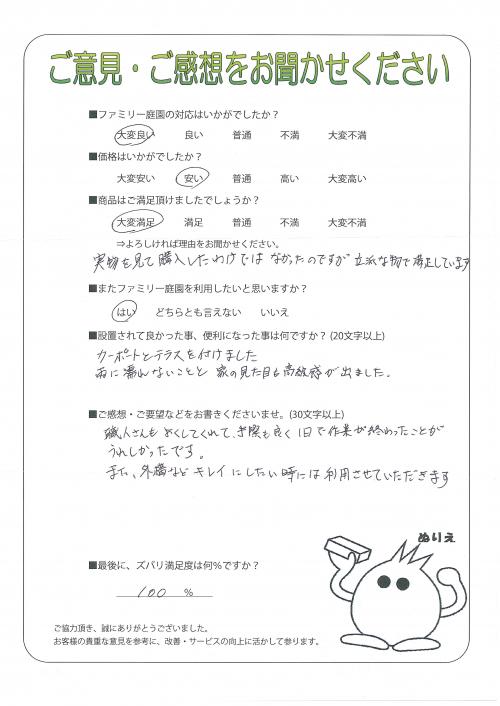 ご意見・ご感想をお聞かせください
■ファミリー庭園の対応はいかがでしたか？
大変良い 良い 普通 不満 大変不満
■価格はいかがでしたか？
大変安い 安い 普通 高い 大変高い
■商品はご満足頂けましたでしょうか？
大変満足 満足 普通 不満 大変不満
⇒よろしければ理由をお聞かせください。
実物を見て購入したわけではなかったのですが立派な物で満足しています
■またファミリー庭園を利用したいと思いますか？
はい どちらとも言えない いいえ
■設置されて良かった事、便利になった事は何ですか？(20文字以上)
カーポートとテラスを付けました
雨に濡れないことと家の見た目も高級感が出ました。
■ご感想・ご要望などをお書きくださいませ。(30文字以上)
職人さんもよくしてくれて、手際も良く1日で作業が終わったことが
うれしかったです。
また、外構などキレイにしたい時には利用させていただきます
ぬりえ
■最後に、ズバリ満足度は何％ですか？
100 ％
ご協力頂き、誠にありがとうございました。
お客様の貴重な意見を参考に、改善・サービスの向上に活かして参ります。